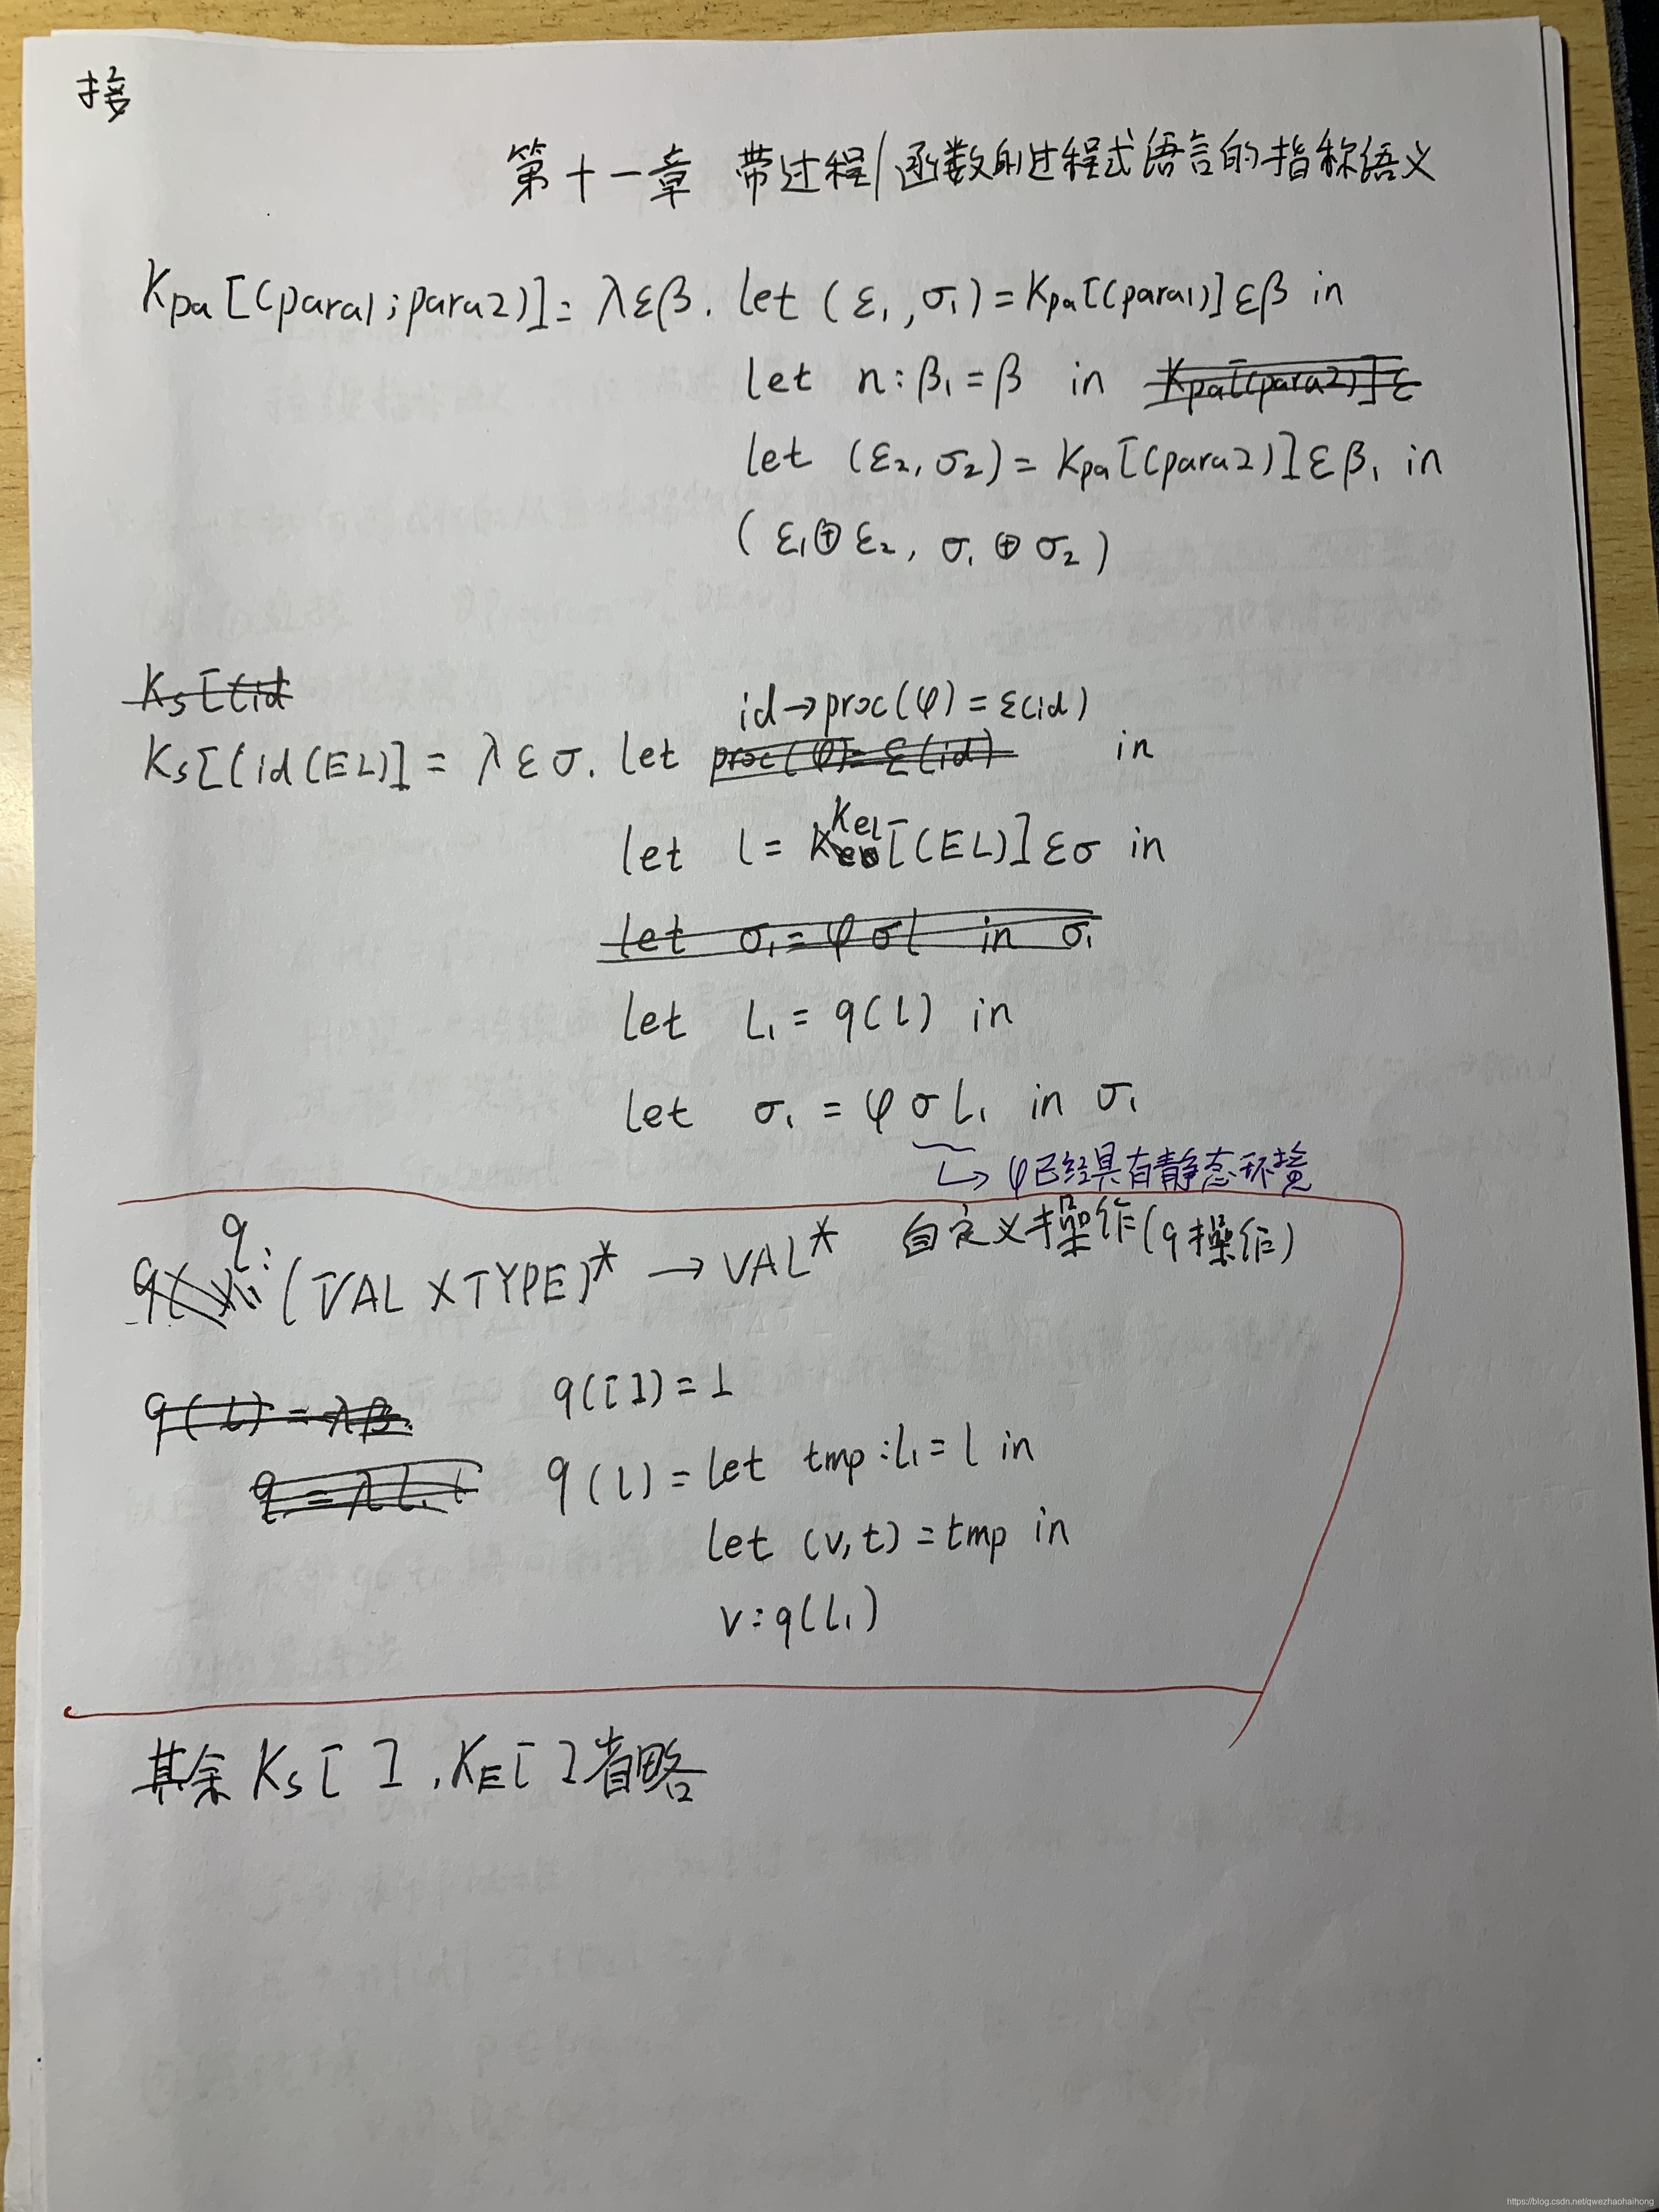 接
第十一章 带过程/函数的过程式语言的指称语义
Kpa[(para1;para2)]= λεβ. let (ε₁,σ₁)=Kpa[(para1)]εβ in
let n:β₁=β in Kpa[(para2)]ε
let (ε₂,σ₂)=Kpa[(para2)]εβ₁ in
(ε₁⊕ε₂, σ₁⊕σ₂)
Ks[(id
id→proc(φ)=ε(id)
Ks[(id(EL)]= λεσ. let proc(φ)=ε(id) in
let l= Kel[(EL)]εσ in
let σ₁=φσl in σ₁
let L₁=q(l) in
let σ₁=φσL₁ in σ₁
↳φ已经具有静态环境
自定义操作(q操作)
q:(VAL×TYPE)*→VAL*
q(l)=λβ. q([])=⊥
q=λL₁ q(l)=let tmp:l₁=l in
let (v,t)=tmp in
v:q(l₁)
其余Ks[ ],KE[ ]省略
https://blog.csdn.net/qwezhaohaihong